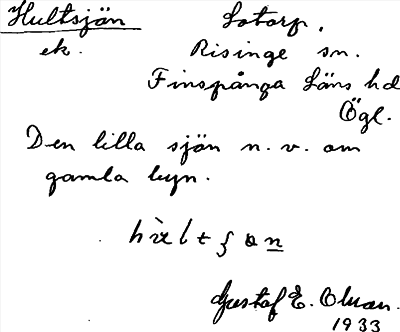 Hultsjön Lotorp.
ek. Risinge sn.
Finspånga Läns hd
Ögl.
Den lilla sjön n. v. om
gamla byn.
Gustaf E. Olman.
1933